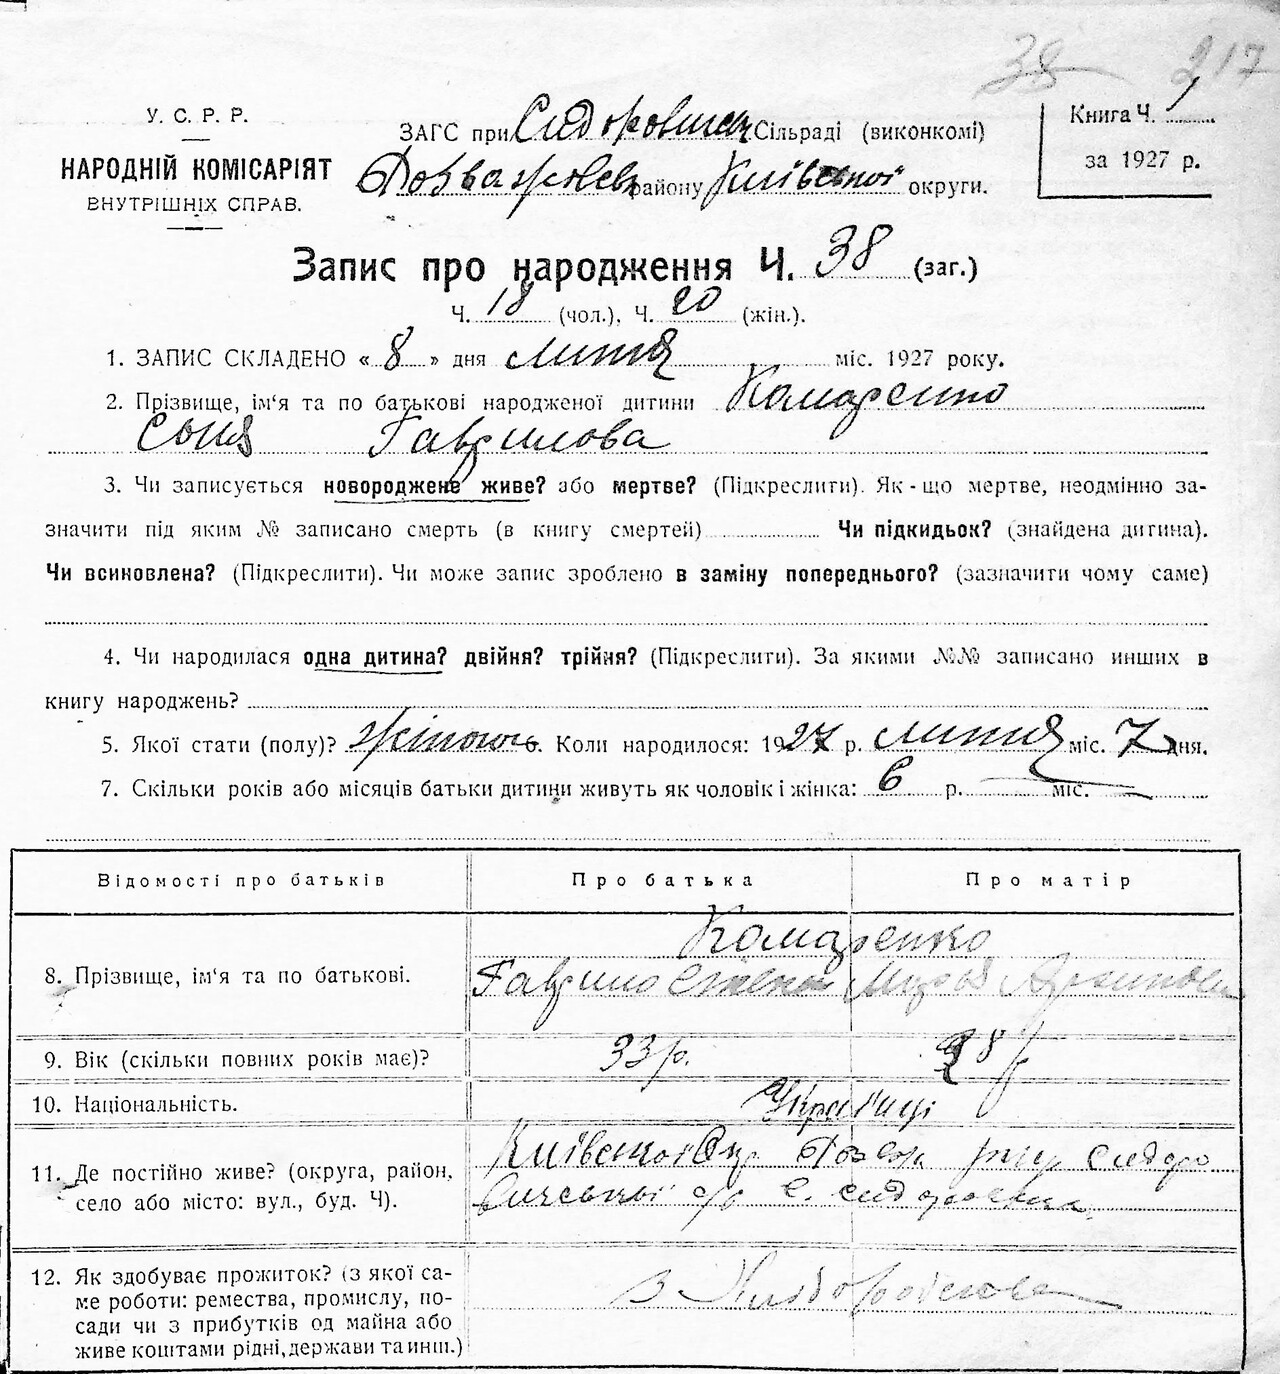 38 217
У. С. Р. Р.
НАРОДНІЙ КОМІСАРІЯТ
ВНУТРІШНІХ СПРАВ.
ЗАГС при Сидоровицк Сільраді (виконкомі)
району Київської округи.
Книга Ч. 1
за 1927 р.
Запис про народження Ч. 38 (заг.)
Ч. 18 (чол.), Ч. 20 (жін.).
1. ЗАПИС СКЛАДЕНО « 8 » дня лютня міс. 1927 року.
2. Прізвище, ім‘я та по батькові народженої дитини Комаренко
Соня Гаврилова
3. Чи записується новороджене живе? або мертве? (Підкреслити). Як-що мертве, неодмінно за-
значити під яким № записано смерть (в книгу смертей) Чи підкидьок? (знайдена дитина).
Чи всиновлена? (Підкреслити). Чи може запис зроблено в заміну попереднього? (зазначити чому саме)
4. Чи народилася одна дитина? двійня? трійня? (Підкреслити). За якими №№ записано инших в
книгу народжень?
5. Якої стати (полу)? жіночь. Коли народилося: 1927 р. лютня міс. 7 дня.
7. Скільки років або місяців батьки дитини живуть як чоловік і жінка: 6 р. — міс.
Відомості про батьків Про батька Про матір
Комаренко
8. Прізвище, ім‘я та по батькові. Гаврило Степан Марія
9. Вік (скільки повних років має)? 33 р. 28 р
10. Національність. Українці
11. Де постійно живе? (округа, район,
село або місто: вул., буд. Ч).
Київської Окр рай Сидоро
вичської с/р с. Сидоровичі
12. Як здобуває прожиток? (з якої са-
ме роботи: ремества, промислу, по-
сади чи з прибутків од майна або
живе коштами рідні, держави та инш.)
З Хліборобства